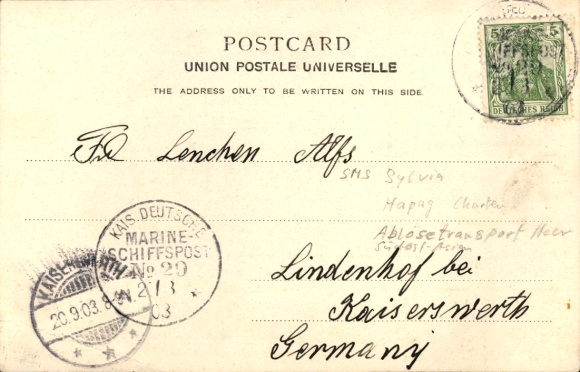 POSTCARD
UNION POSTALE UNIVERSELLE
THE ADDRESS ONLY TO BE WRITTEN ON THIS SIDE.
5 5
DEUTSCHES REICH
Lenchen Alfs
SMS Sylvia
Hapag Charter
Ablösetransport Heer
Südost-Asien
Lindenhof bei
Kaiserswerth
Germany
KAIS. DEUTSCHE
MARINE-
SCHIFFSPOST
No 29
2/8
03
KAISERSWERTH
20.9.03. 8-9V.